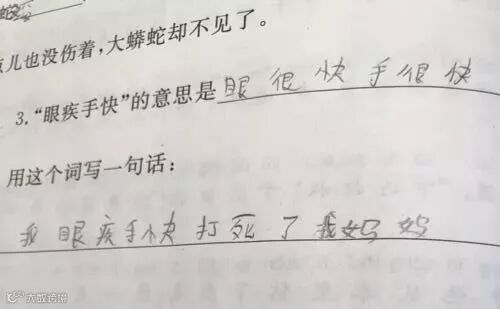 点儿也没伤着，大蟒蛇却不见了。
3.“眼疾手快”的意思是眼很快手很快
用这个词写一句话：
我眼疾手快打死了我妈妈
大数跨境